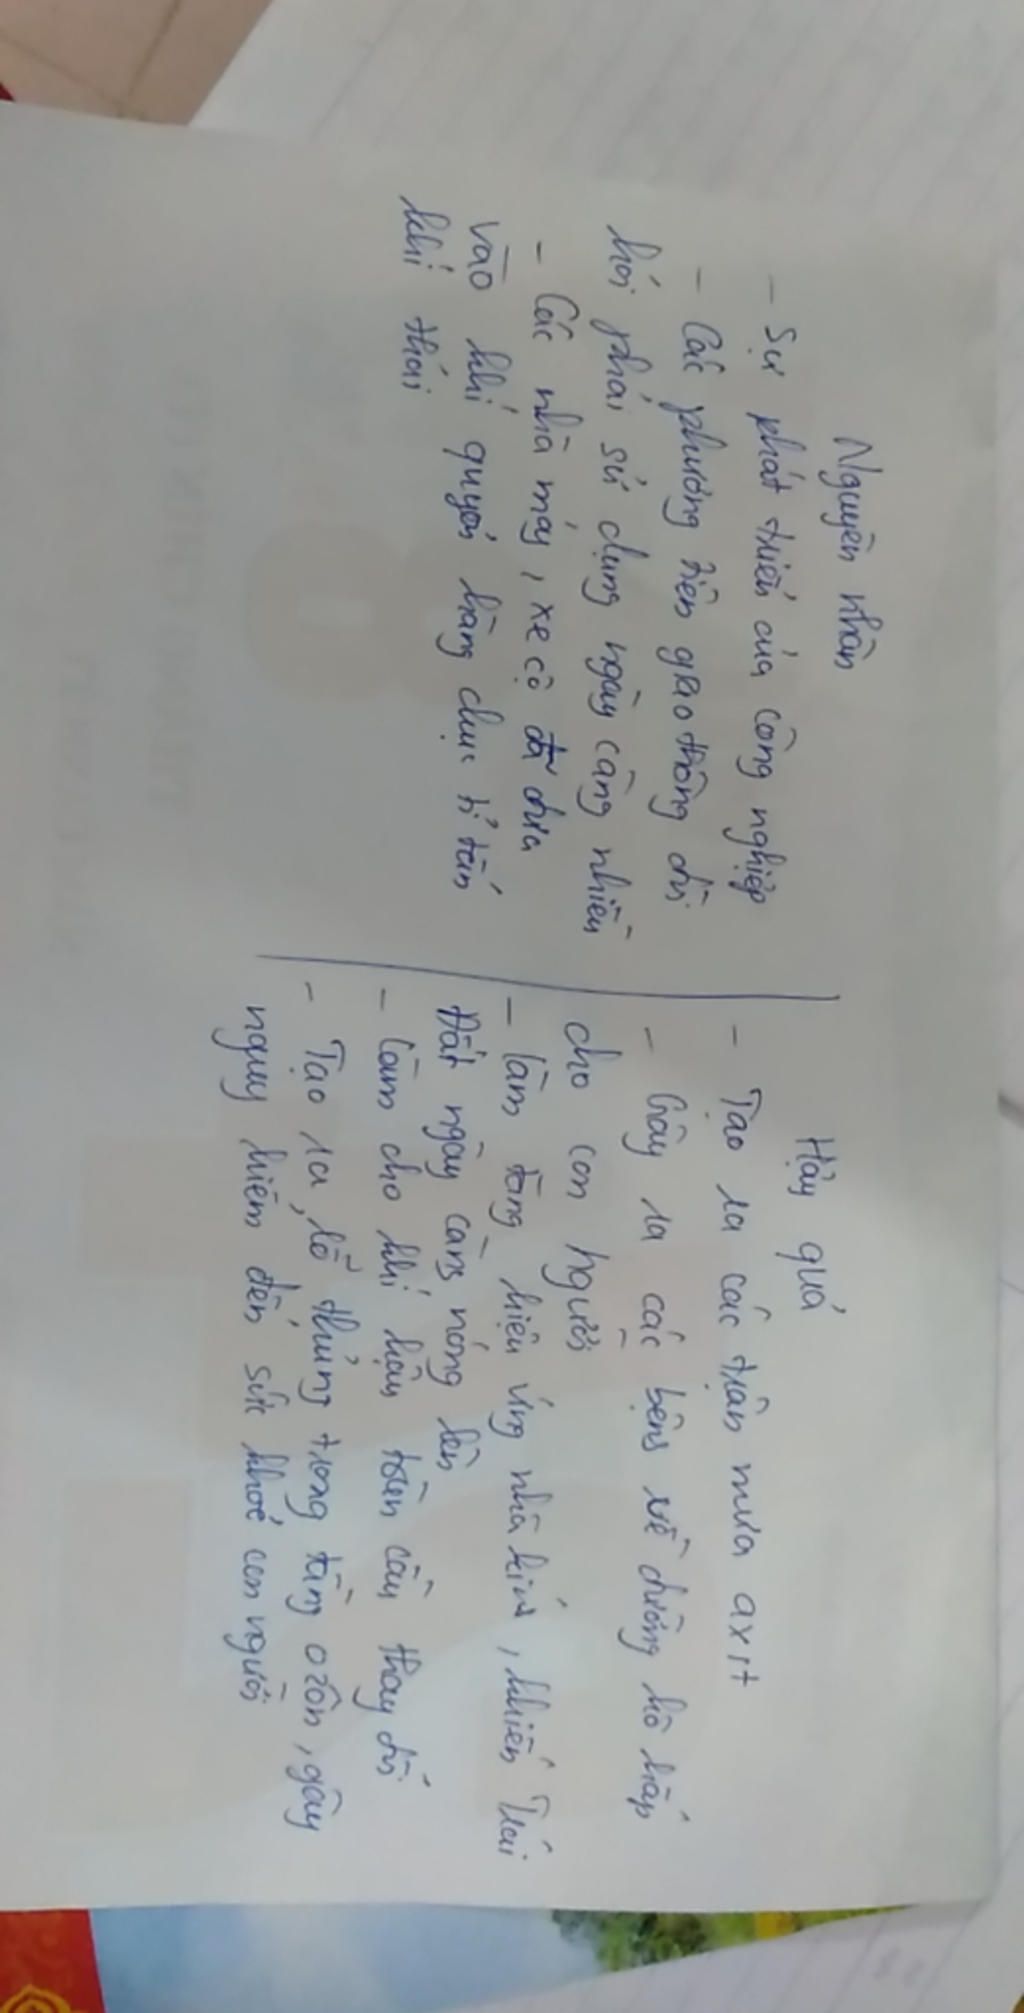 Nguyên nhân
- Sự phát triển của công nghiệp
- Các phương tiện giao thông đòi
hỏi phải sử dụng ngày càng nhiều
- Các nhà máy, xe cộ đã đưa
vào khí quyển hàng chục tỉ tấn
khí thải
Hậy quả
- Tạo ra các trận mưa axit
- Gây ra các bệnh về đường hô hấp
cho con người
- làm tăng hiệu ứng nhà kính, khiến Trái
Đất ngày càng nóng lên
- Làm cho khí hậu toàn cầu thay đổi
- Tạo ra lỗ thủng trong tầng ozôn, gây
nguy hiểm đến sức khoẻ con người